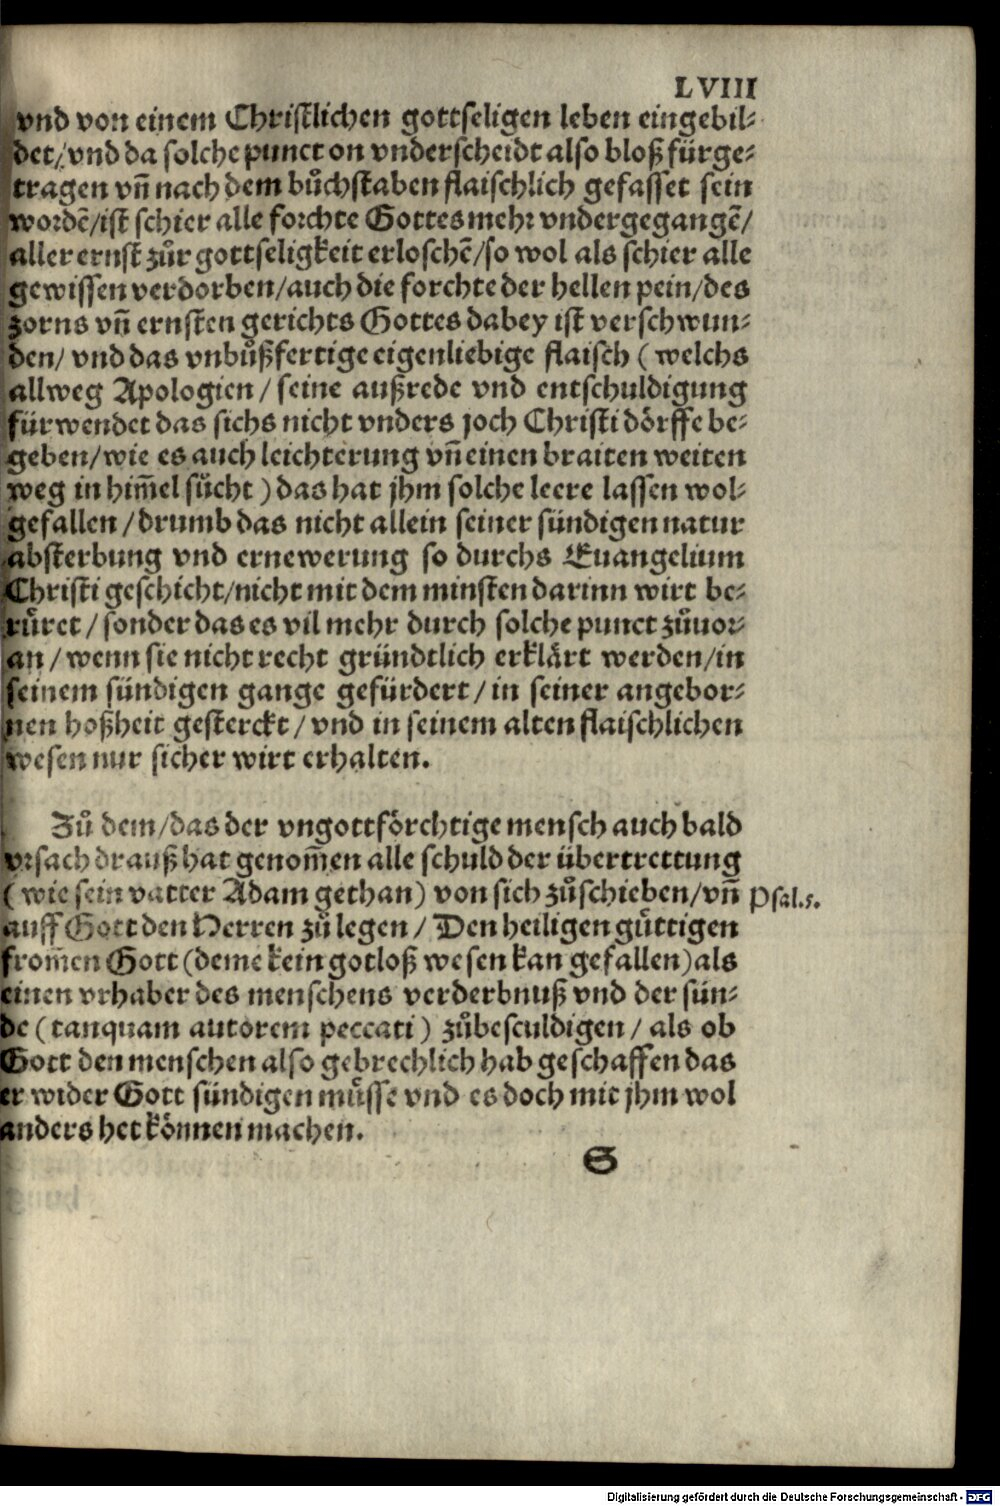 LVIII
vnd von einem Christlichen gottseligen leben eingebil-
det/vnd da solche punct on vnderscheidt also bloß fürge-
tragen vn̄ nach dem bůchstaben flaischlich gefasset sein
wordē/ist schier alle forchte Gottes mehr vndergegangē/
aller ernst zůr gottseligkeit erloschē/so wol als schier alle
gewissen verdorben/auch die forchte der hellen pein/des
zorns vn̄ ernsten gerichts Gottes dabey ist verschwun-
den/ vnd das vnbůßfertige eigenliebige flaisch (welchs
allweg Apologien/ seine außrede vnd entschuldigung
fürwendet das sichs nicht vnders joch Christi dörffe be-
geben/wie es auch leichterung vn̄ einen braiten weiten
weg in him̄el sůcht) das hat jhm solche leere lassen wol-
gefallen/drumb das nicht allein seiner sündigen natur
absterbung vnd ernewerung so durchs Euangelium
Christi geschicht/nicht mit dem minsten darinn wirt be-
růret/ sonder das es vil mehr durch solche punct zůuor-
an/wenn sie nicht recht gründtlich erklärt werden/in
seinem sündigen gange gefürdert/in seiner angebor-
nen hoßheit gesterckt/ vnd in seinem alten flaischlichen
wesen nur sicher wirt erhalten.
Zů dem/das der vngottförchtige mensch auch bald
vrsach drauß hat genom̄en alle schuld der übertrettung
(wie sein vatter Adam gethan) von sich zůschieben/vn̄
Psal.5.
auff Gott den Herren zů legen/ Den heiligen gůttigen
from̄en Gott (deme kein gotloß wesen kan gefallen) als
einen vrhaber des menschens verderbnuß vnd der sün-
de (tanquam autorem peccati) zůbesculdigen/ als ob
Gott den menschen also gebrechlich hab geschaffen das
er wider Gott sündigen můsse vnd es doch mit jhm wol
anders het können machen.
S
Digitalisierung gefördert durch die Deutsche Forschungsgemeinschaft - DFG